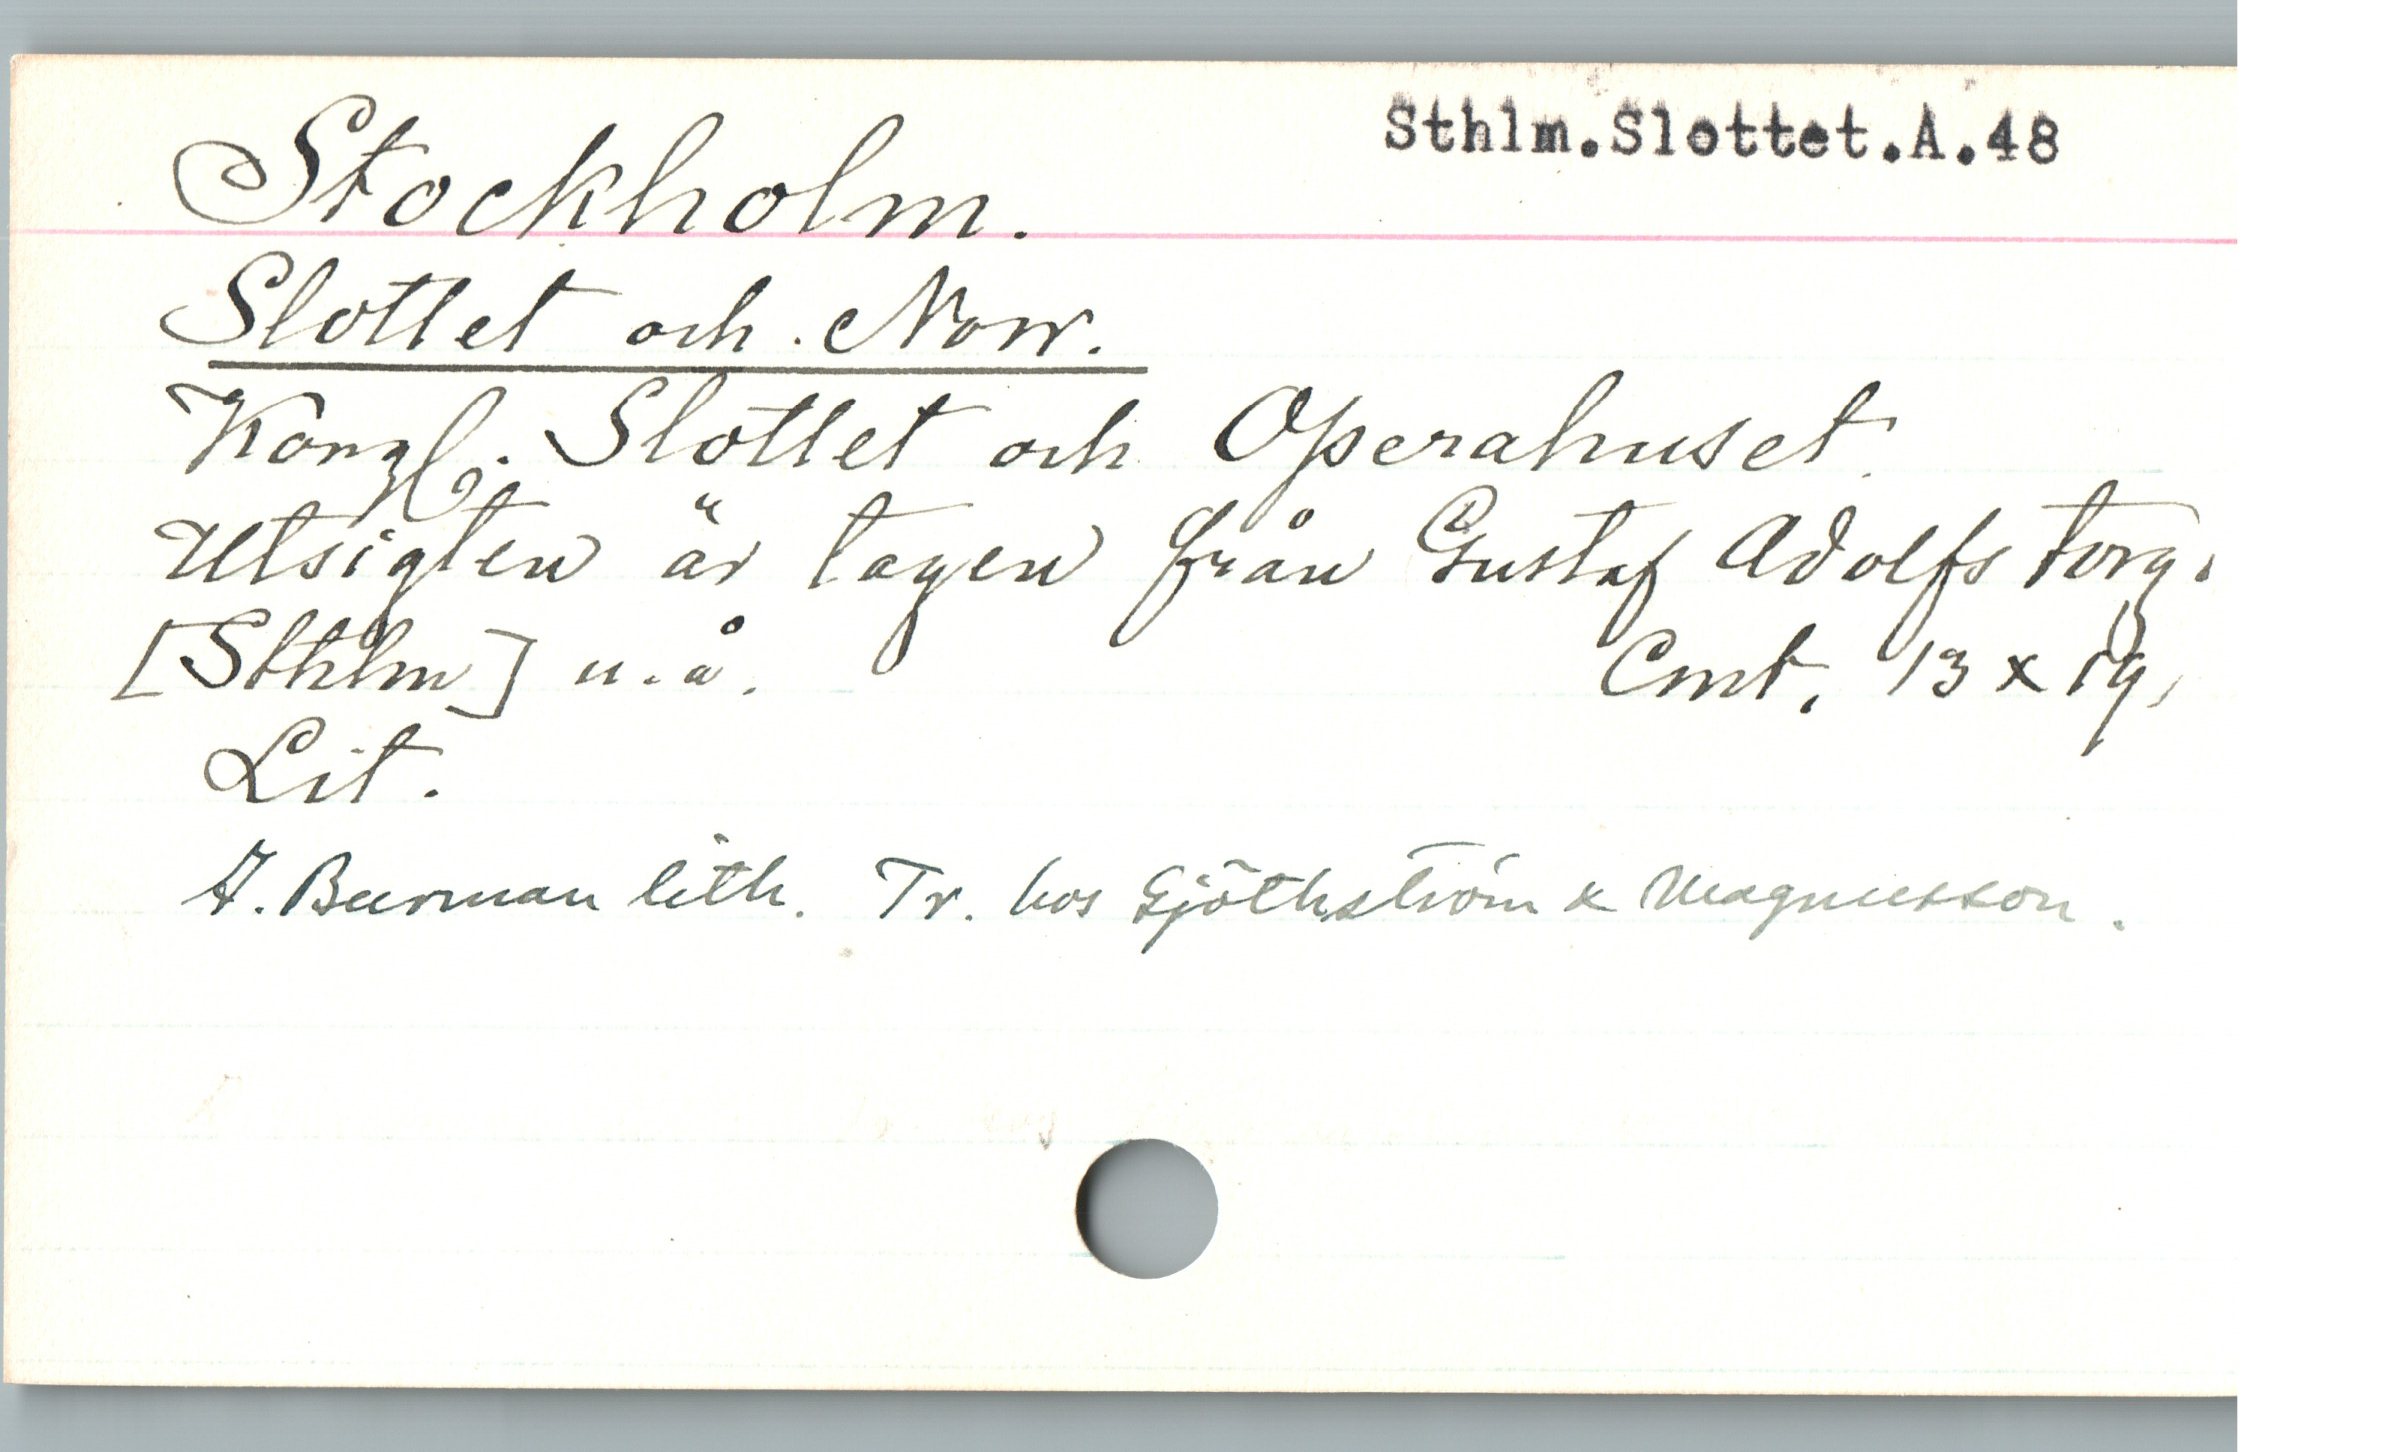 Sthlm.Slottet.A.48
Stockholm.
Slottet och Norr.
Kongl. Slottet och Operahuset.
Utsigten är tagen från Gustaf Adolfs torg.
[Sthlm] u.å. Cmt. 13 x 19,
Lit.
A. Burman lith. Tr. hos Gjöthström & Magnusson.